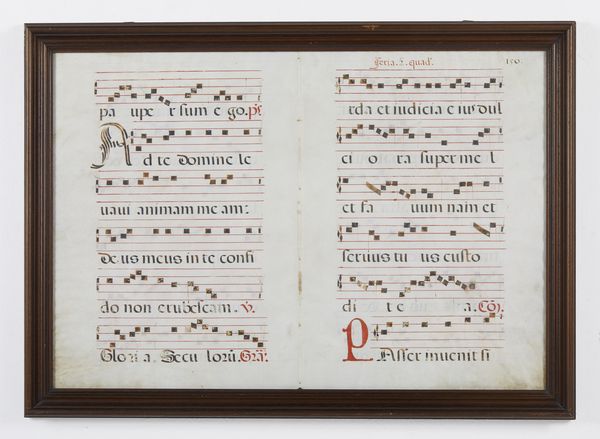 pa upe r sum e go. ps
Ad te domine le
uaui animam me am:
de us meus in te confi
do non erubescam. V.
Glori a. Secu lorū. Gra.
feria. 2. quad.
150.
rda et iudicia e ius dul
ci o ra super me l
et fa uum nam et
seruus tu us custo
di t e a. Cō.
PAsser inuenit si